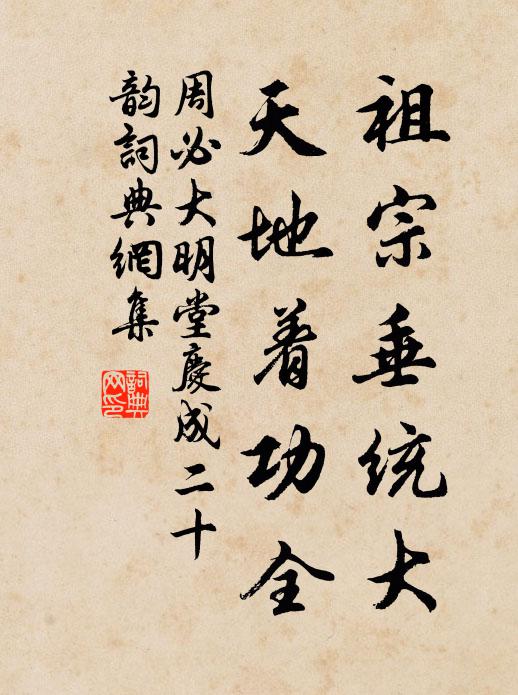 祖宗垂统大
天地着功全
周必大明堂慶成二十
韵詞典網集
詞典
网印